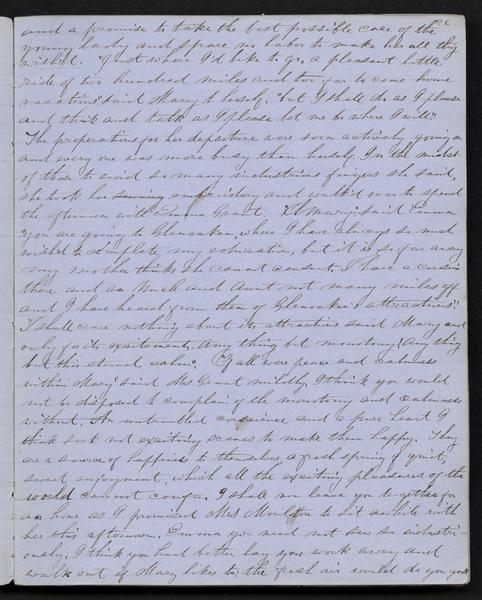 and a promise to take the best possible care of the
young lady and spare no labor to make her all they
wished. "Just where I'd like to go, a pleasant little
ride of two hundred miles and too far to come home
vacations" said Mary to herself. "but I shall do as I please
and think and talk as I please let me be where I will."
The preparations for her departure were soon actively going on
and every one was more busy than herself. In the midst
of those to avoid so many industrious fingers she said,
she took her sewing and walk'd over to spend
the afternoon with Emma Grant. "Oh Mary" said Emma
"you are going to Glenoaken, where I have always so much
wish'd to complete my education, but it is so far away
my mother thinks she cannot consent. I have a cousin
there and an Uncle and Aunt not many miles off
and I have heard from them of Glenoaken's attractions"
I shall care nothing about its attractions said Mary and
only for its excitement, any thing but monotony! Any thing
but this eternal calm". "If all were peace and calmness
within Mary" said Mrs Grant mildly, I think you would
not be disposed to complain of the monotony and calmness
without. An untroubled conscience and a pure heart I
think seek not exciting scenes to make them happy. They
are a source of happiness to themselves a fresh spring of quiet,
sweet enjoyment, which all the exciting pleasures of the
world cannot confer. I shall now leave you together for
an hour as I promised Mrs Moulton to sit awhile with
her this afternoon. Emma you need not sew so industri-
ously. I think you had better lay your work away and
walk out if Mary likes to; the fresh air would do you good